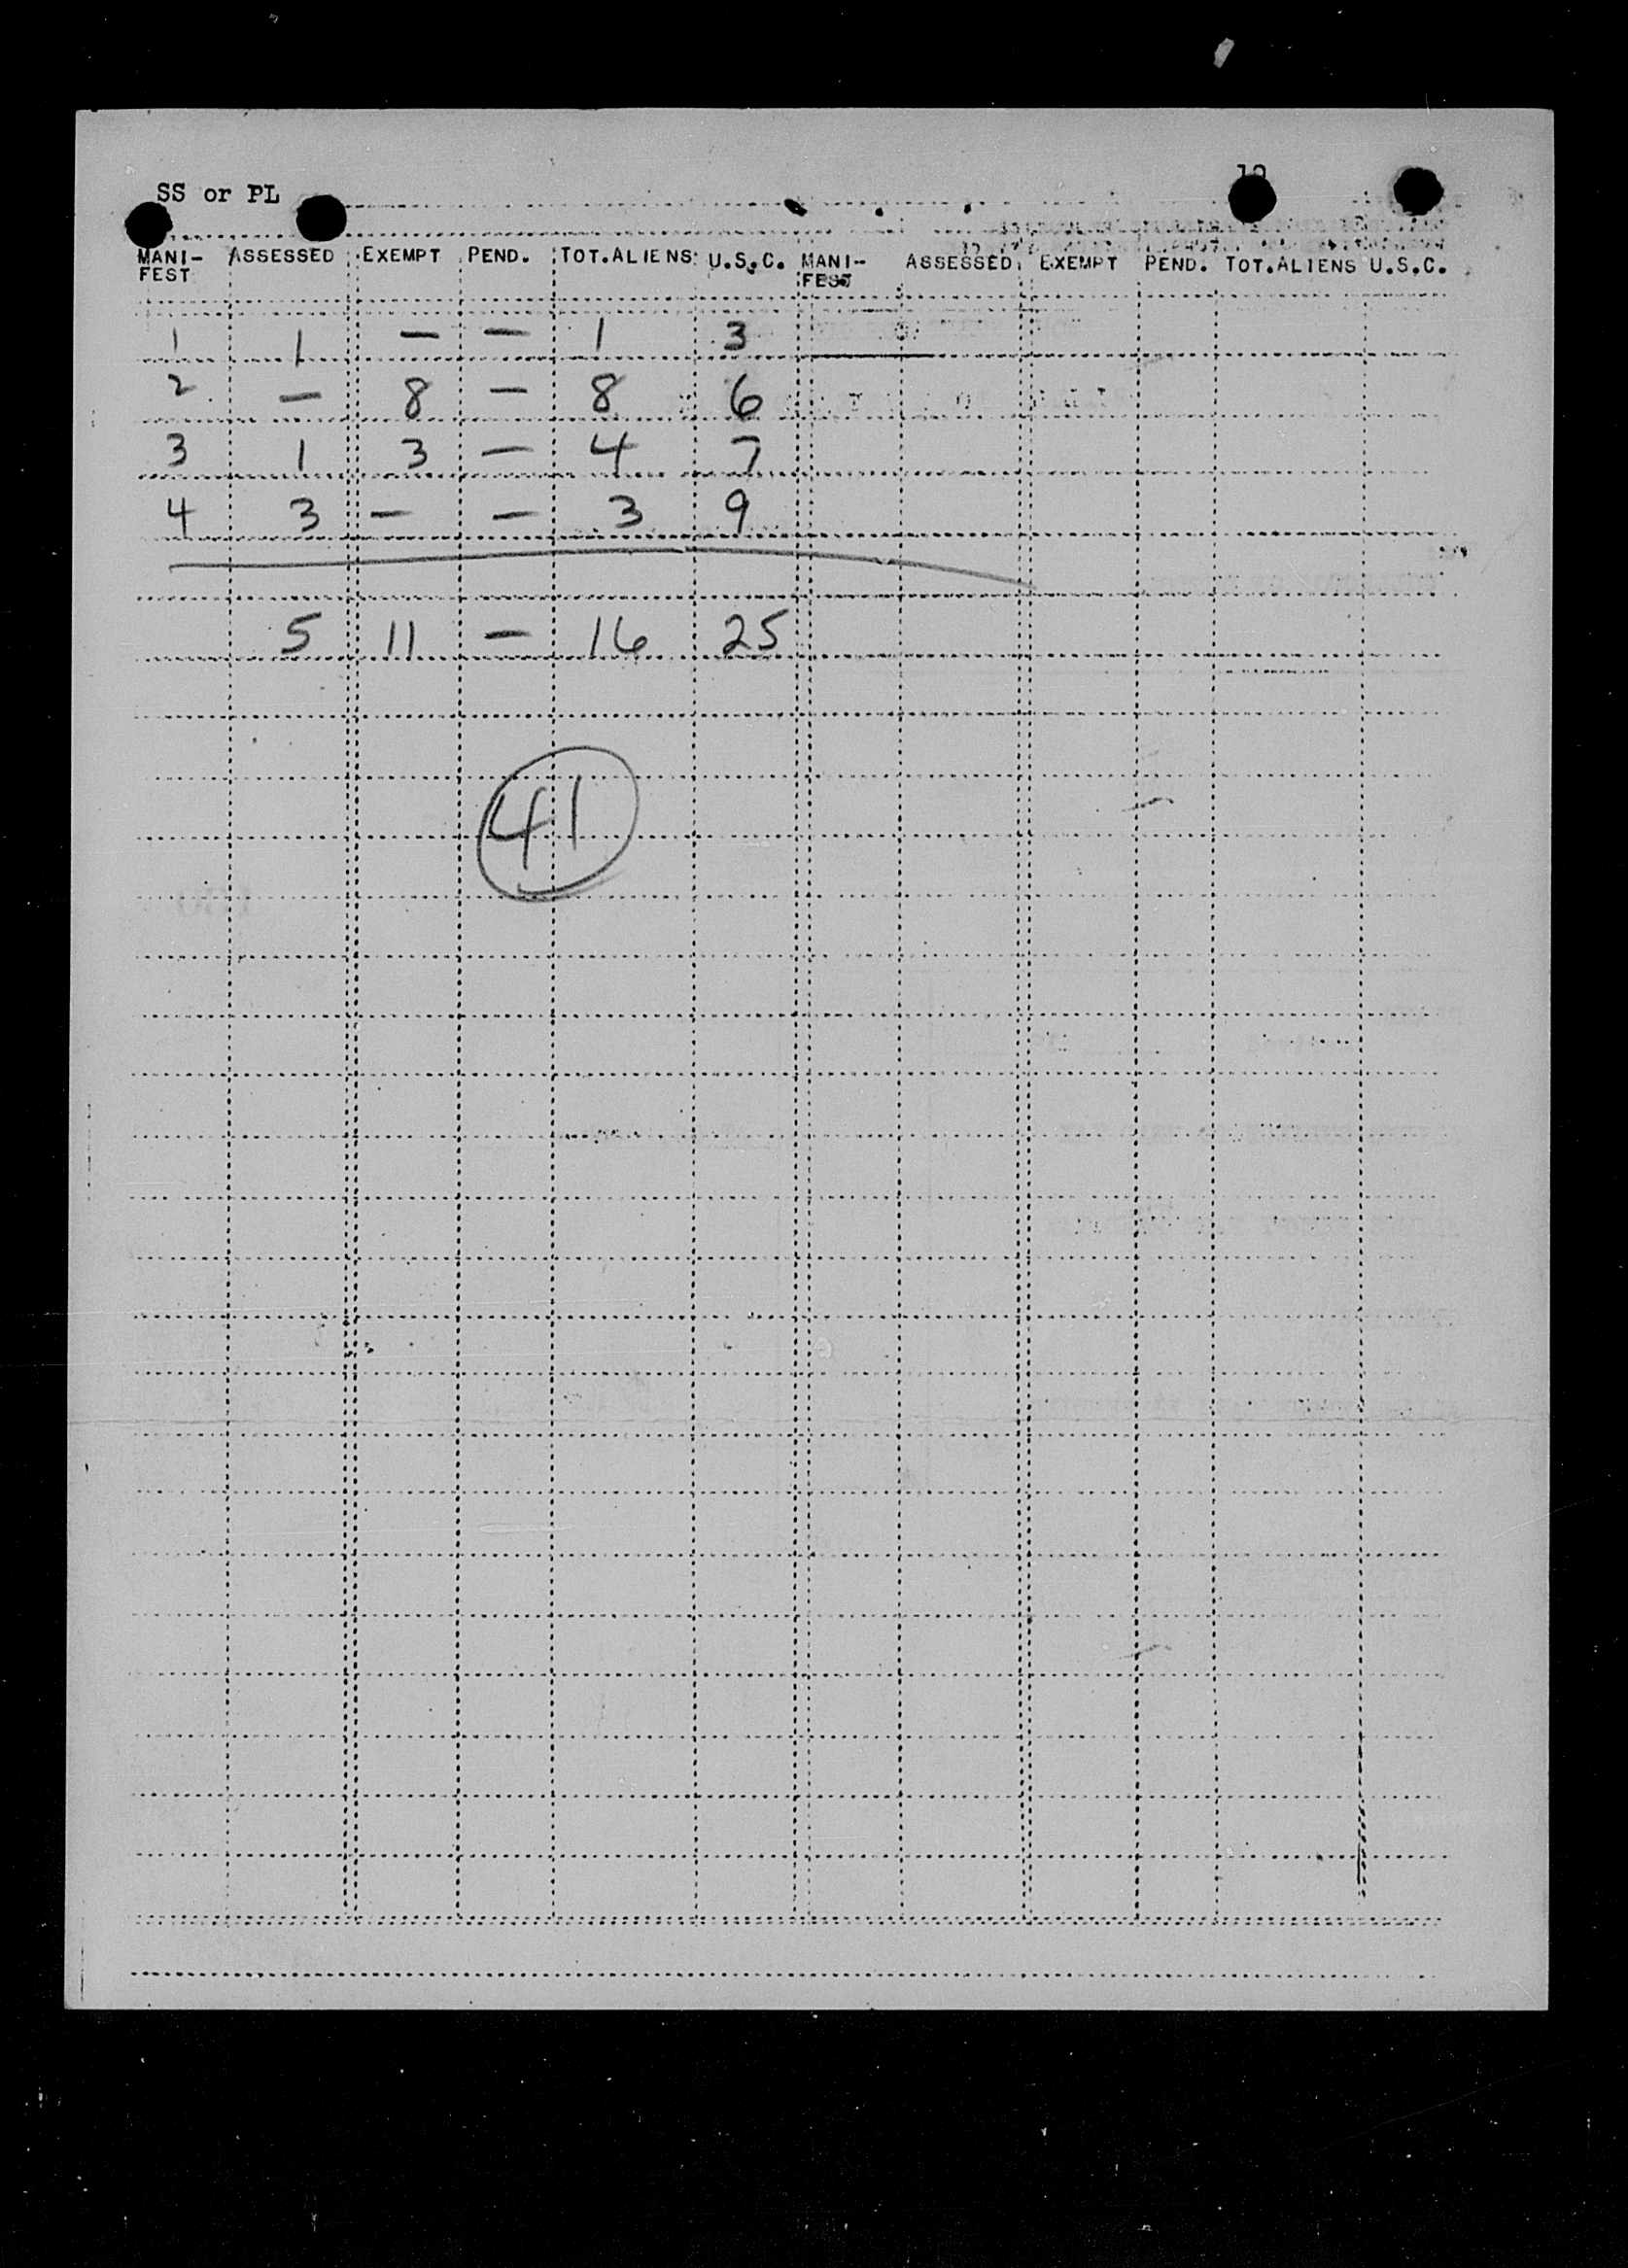 19
SS or PL
MANI- ASSESSED EXEMPT PEND. TOT.ALIENS U.S.C. MANI- ASSESSED EXEMPT PEND. TOT.ALIENS U.S.C.
FEST FEST
1 1 — — 1 3
2 — 8 — 8 6
3 1 3 — 4 7
4 3 — — 3 9
5 11 — 16 25
41